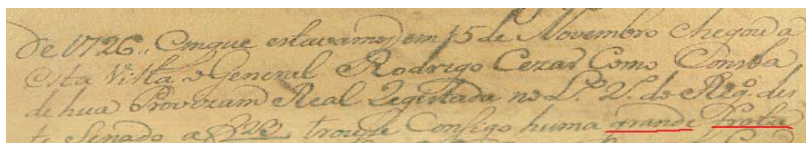 de 1726,, Emque estavamos, em 15 de Novembro chegou a
esta Villa o General Rodrigo Cezar Como Consta
de hua Provizam Real Registada no L.º 2.º do Reg.º des
te Senado a f 22 trouse Consigo huma grande Frota